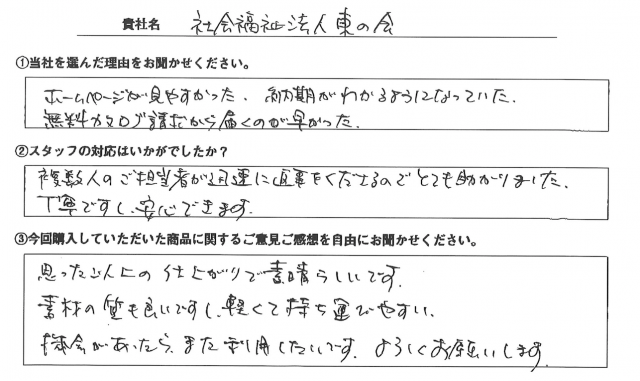 貴社名 社会福祉法人 東の会
①当社を選んだ理由をお聞かせください。
ホームページが見やすかった。納期がわかるようになっていた。
無料カタログ請求から届くのが早かった。
②スタッフの対応はいかがでしたか？
複数人のご担当者が迅速に返事をくださるのでとても助かりました。
丁寧ですし、安心できます。
③今回購入していただいた商品に関するご意見ご感想を自由にお聞かせください。
思った以上の仕上がりで素晴らしいです。
素材の質も良いですし、軽くて持ち運びやすい。
機会があったら、また利用したいです。よろしくお願いします。